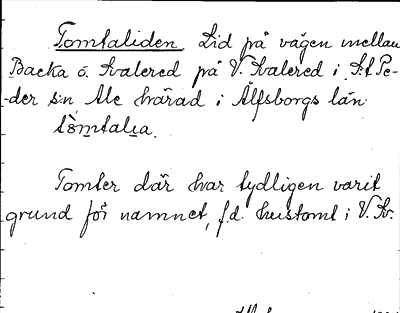 Tomtaliden Lid på vägen mellan
Backa o. Kvalered på V. Kvalered i S:t Pe-
der s:n Ale härad i Älfsborgs län
tòmtalia.
Tomter där har tydligen varit
grund för namnet, f.d. hustomt i V. Kv.